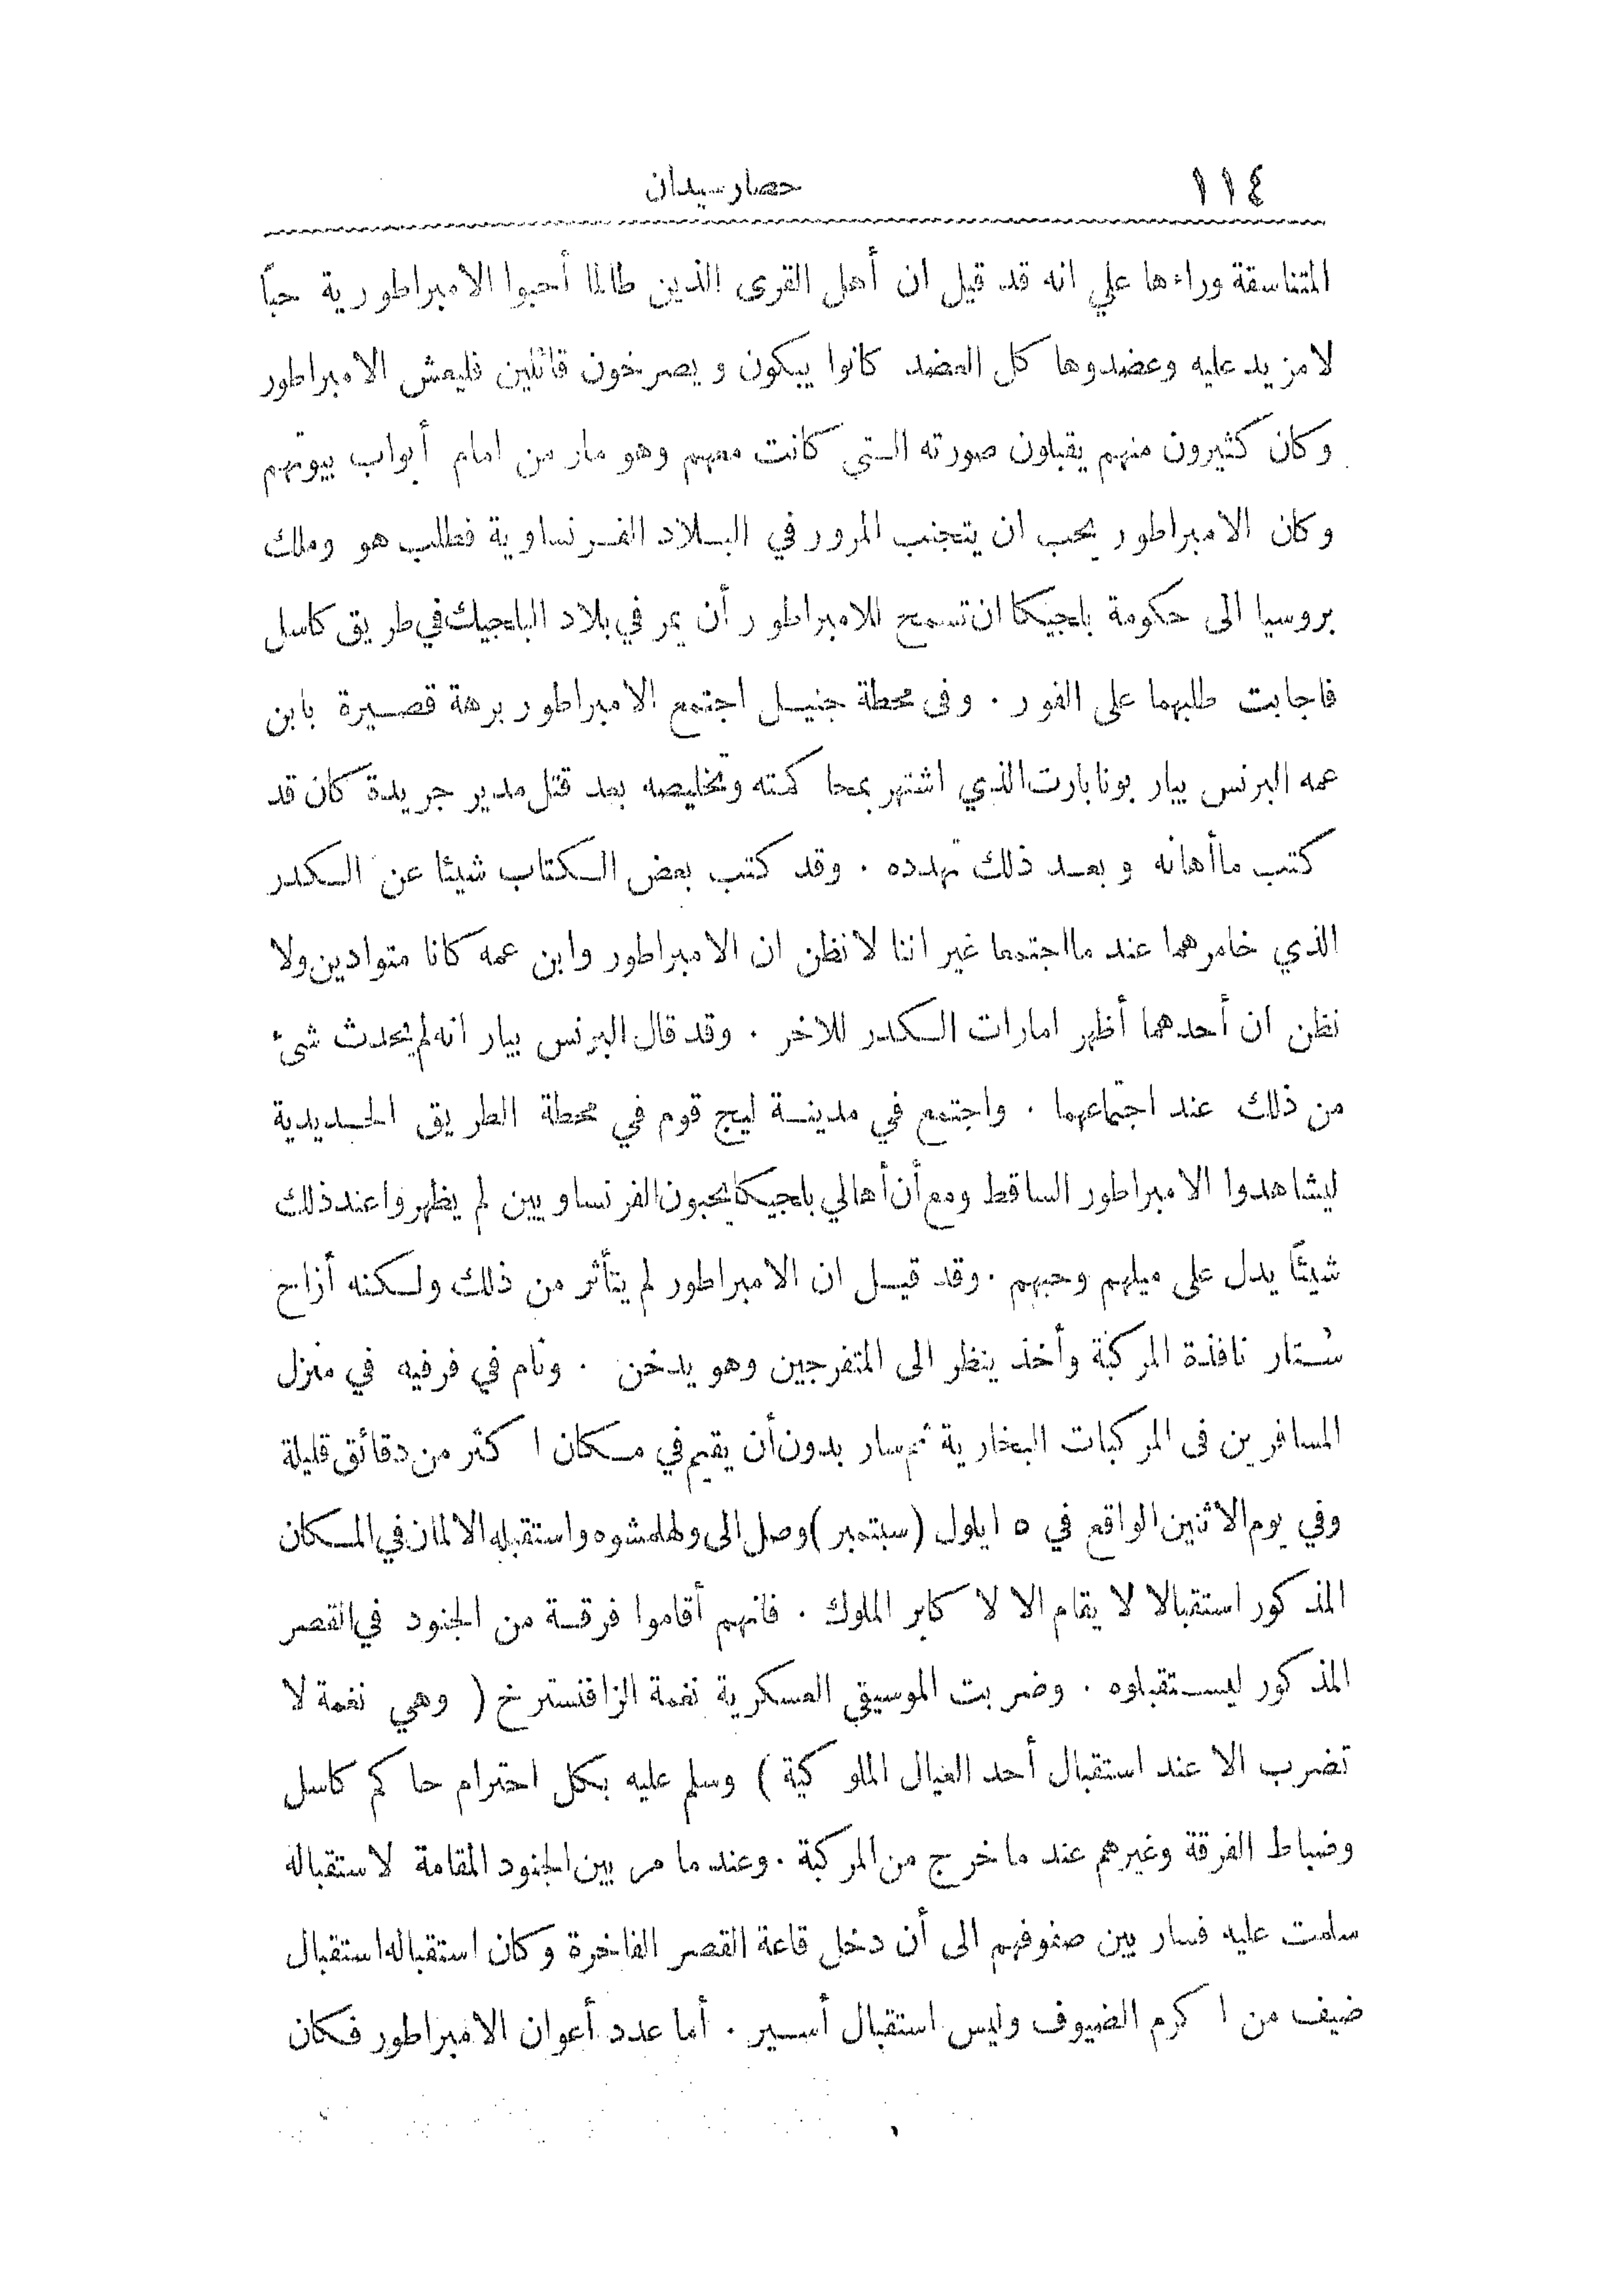 ١١٤ حصار سيدان
المتناسقة وراءها على انه قد قيل ان أهل القرى الذين طالما أحبوا الامبراطورية حبّاً
لا مزيد عليه وعضدوها كل العضد كانوا يبكون ويصرخون قائلين فليعش الامبراطور
وكان كثيرون منهم يقبلون صورته التي كانت معهم وهو مار من امام أبواب بيوتهم
وكان الامبراطور يحب ان يتجنب المرور في البلاد الفرنساوية فطلب هو وملك
بروسيا الى حكومة بلجيكا ان تسمح للامبراطور أن يمر في بلاد البلجيك في طريق كاسل
فاجابت طلبهما على الفور . وفى محطة جنيل اجتمع الامبراطور برهة قصيرة بابن
عمه البرنس بيار بونابارت الذي اشتهر بمحاكمته وتخليصه بعد قتل مدير جريدة كان قد
كتب ما أهانه وبعد ذلك تهدده . وقد كتب بعض الكتاب شيئا عن الكدر
الذي خامرهما عند ما اجتمعا غير اننا لا نظن ان الامبراطور وابن عمه كانا متوادين ولا
نظن ان أحدهما أظهر امارات الكدر للاخر . وقد قال البرنس بيار انه لم يحدث شىء
من ذلك عند اجتماعهما . واجتمع في مدينة ليج قوم في محطة الطريق الحديدية
ليشاهدوا الامبراطور الساقط ومع أن أهالي بلجيكا يحبون الفرنساويين لم يظهروا عند ذلك
شيئًا يدل على ميلهم وحبهم . وقد قيل ان الامبراطور لم يتأثر من ذلك ولكنه أزاح
ستار نافذة المركبة وأخذ ينظر الى المتفرجين وهو يدخن . ونام في فرفيه في منزل
المسافرين فى المركبات البخارية ثم سار بدون أن يقيم في مكان اكثر من دقائق قليلة
وفي يوم الاثنين الواقع في ٥ ايلول (سبتمبر) وصل الى ولهلمشوه واستقبله الالمان في المكان
المذكور استقبالا لا يقام الا لاكابر الملوك . فانهم أقاموا فرقة من الجنود في القصر
المذكور ليستقبلوه . وضربت الموسيقى العسكرية نغمة الزافنسترخ ( وهي نغمة لا
تضرب الا عند استقبال أحد العيال الملوكية ) وسلم عليه بكل احترام حاكم كاسل
وضباط الفرقة وغيرهم عند ما خرج من المركبة . وعند ما مر بين الجنود المقامة لاستقباله
سلمت عليه فسار بين صفوفهم الى أن دخل قاعة القصر الفاخرة وكان استقباله استقبال
ضيف من اكرم الضيوف وليس استقبال أسير . أما عدد أعوان الامبراطور فكان